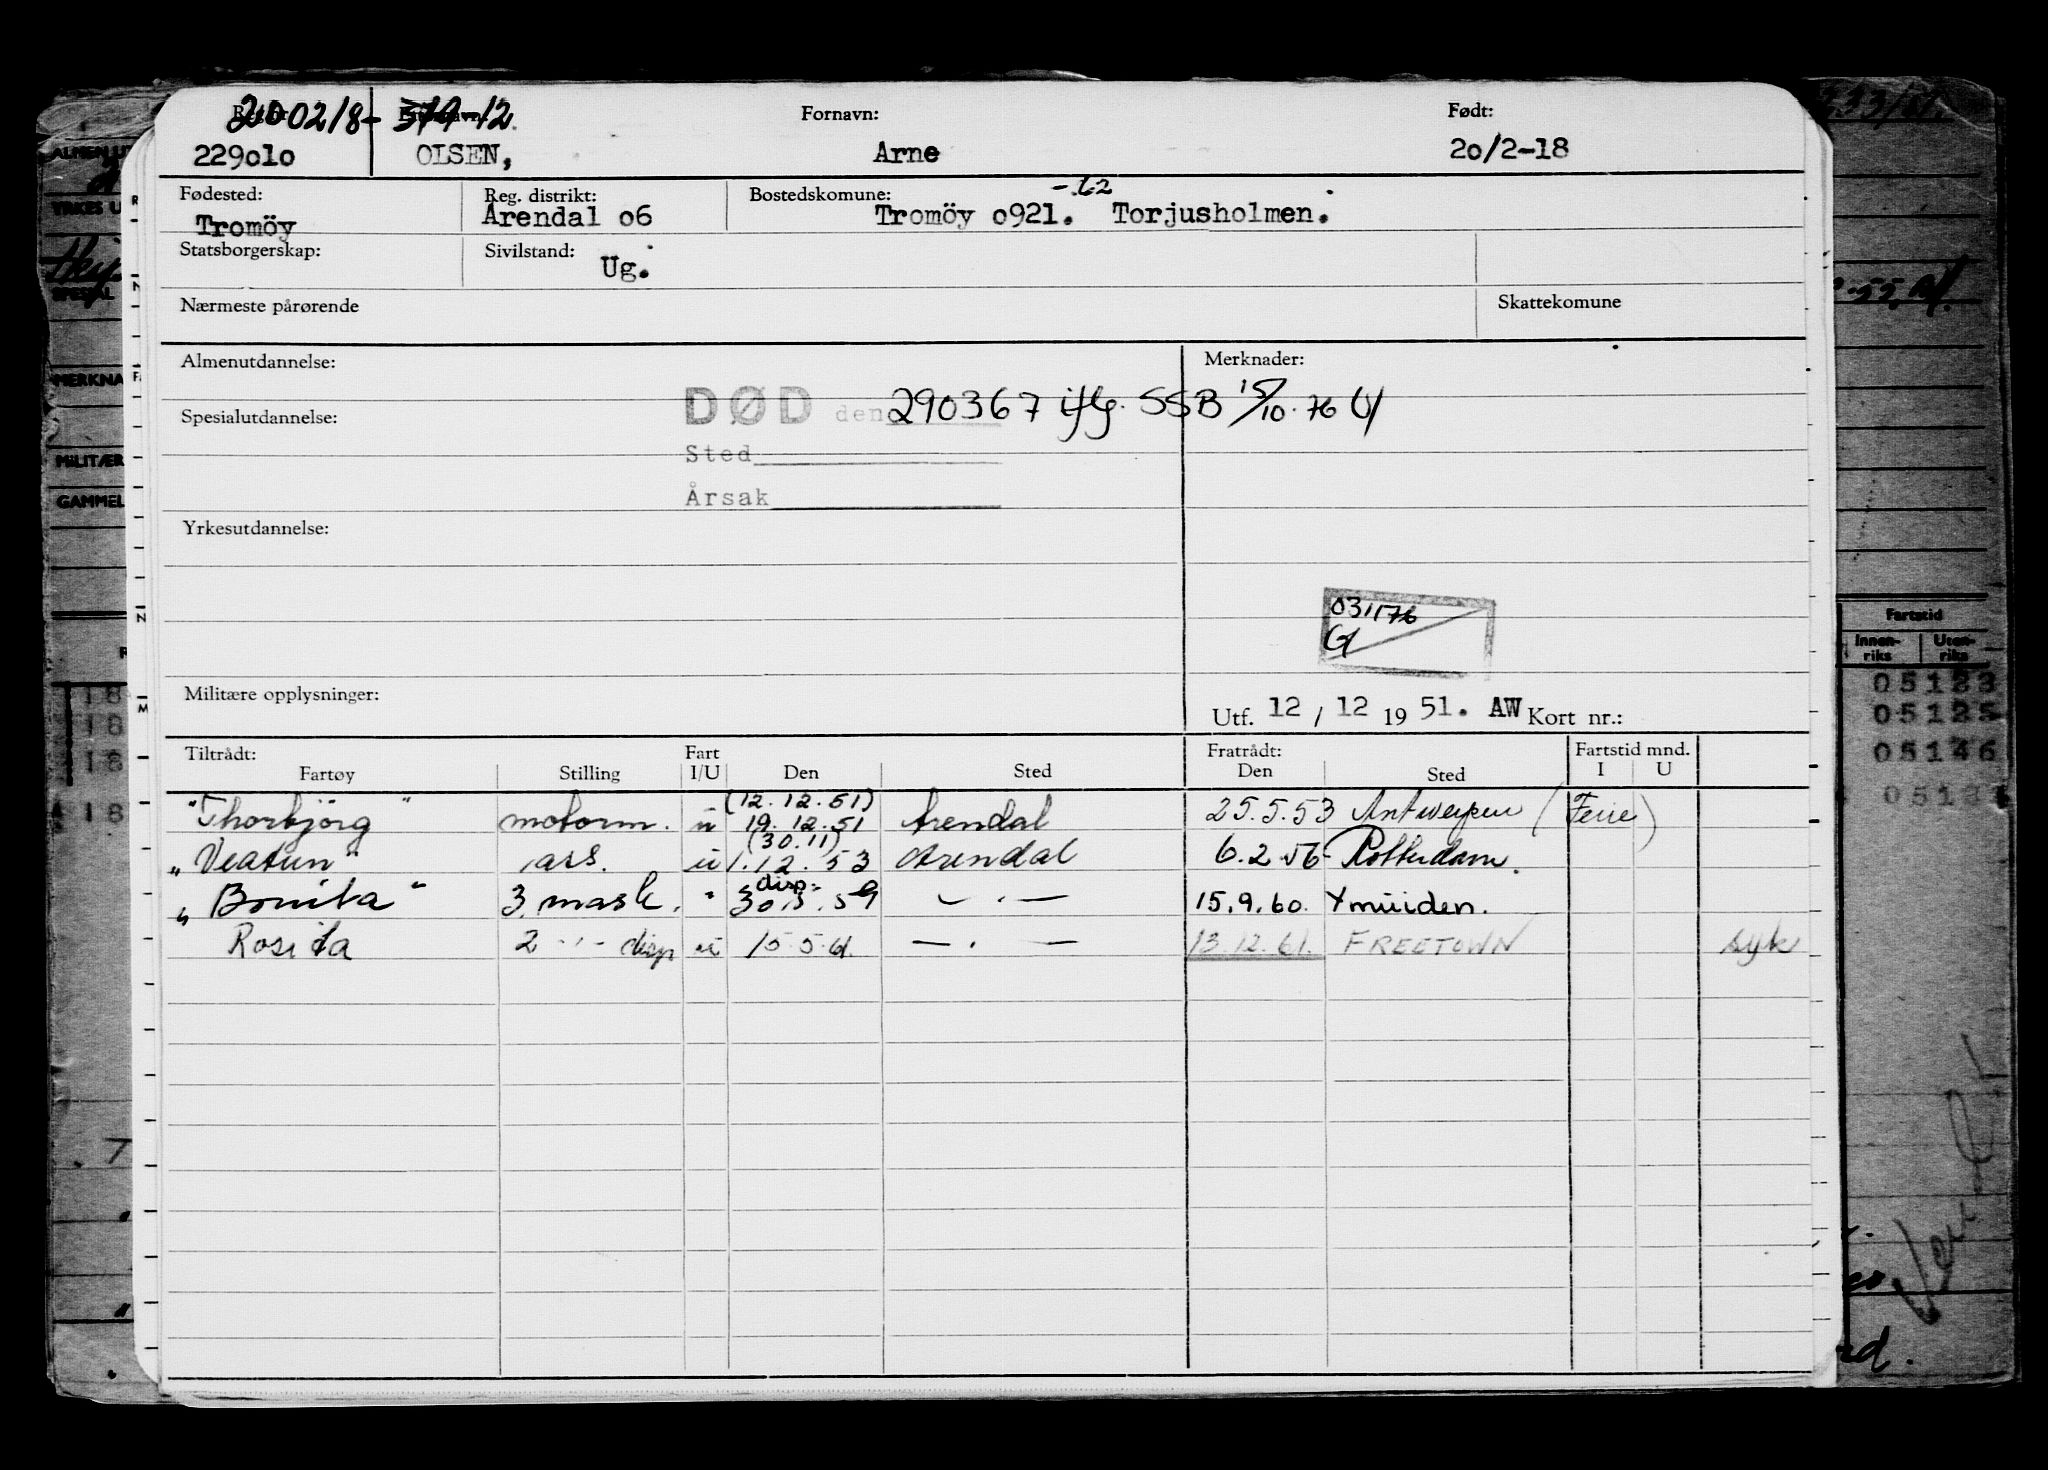 200218- 379-12
Etternavn: Fornavn: Født:
229olo OLSEN, Arne 2o/2-18
Fødested: Reg. distrikt: Bostedskomune: -62
Tromöy Arendal o6 Tromöy o921. Torjusholmen.
Statsborgerskap: Sivilstand: Ug.
Nærmeste pårørende Skattekomune
Almenutdannelse: Merknader:
DØD den 290367 iflg. SSB 15/10-76 G/
Spesialutdannelse:
Sted
Årsak
Yrkesutdannelse:
031176
G/
Militære opplysninger: Utf. 12 / 12 19 51. AW Kort nr.:
Tiltrådt: Fart Fratrådt: Fartstid mnd.
Fartøy Stilling I/U Den Sted Den Sted I U
(12.12.51)
"Thorbjörg" motorm. u 19.12.51 Arendal 25.5.53 Antwerpen (Ferie)
(30.11)
"Veatun" ass. u 1.12.53 Arendal 6.2.56 Rotterdam.
disp.
"Bonita" 3. mask. " 30.5.59 — " — 15.9.60. Ymuiden.
Rosita 2 - " - disp u 15.5.61. — " — 13.12.61. FREETOWN syk
ALMEN UT
YRKES U
SPESIAL
MERKNA
MILITÆR
GAMMEL
18
18
18
18
333/51.
Fartstid
Innen-riks Uten-riks
05123
05125
05146